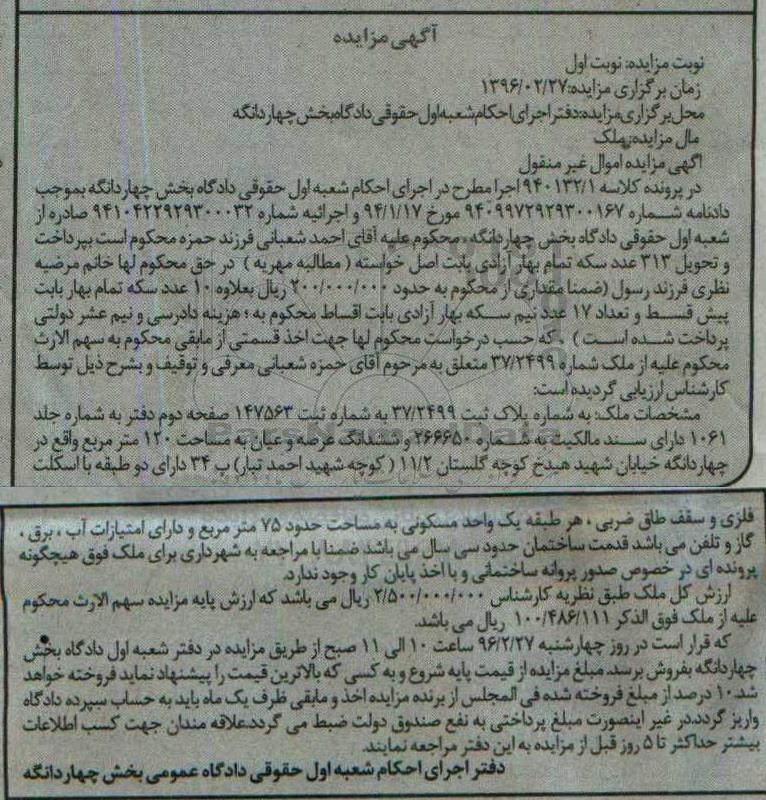 آگهی مزایده
نوبت مزایده: نوبت اول
زمان برگزاری مزایده:۱۳۹۶/۰۲/۲۷
محل برگزاری مزایده: دفتر اجرای احکام شعبه اول حقوقی دادگاه بخش چهاردانگه
مال مزایده: ملک
آگهی مزایده اموال غیر منقول
در پرونده کلاسه ۹۴۰۱۳۲/۱ اجرا مطرح در اجرای احکام شعبه اول حقوقی دادگاه بخش چهاردانگه بموجب
دادنامه شماره ۹۴۰۹۹۷۲۹۲۹۳۰۰۱۶۷ مورخ ۹۴/۱/۱۷ و اجرائیه شماره ۹۴۱۰۴۲۲۹۲۹۳۰۰۰۳۲ صادره از
شعبه اول حقوقی دادگاه بخش چهاردانگه ، محکوم علیه آقای احمد شعبانی فرزند حمزه محکوم است بپرداخت
و تحویل ۳۱۳ عدد سکه تمام بهار آزادی بابت اصل خواسته ( مطالبه مهریه ) در حق محکوم لها خانم مرضیه
نظری فرزند رسول (ضمنا مقداری از محکوم به حدود ۲۰۰/۰۰۰/۰۰۰ ریال بعلاوه ۱۰ عدد سکه تمام بهار بابت
پیش قسط و تعداد ۱۷ عدد نیم سکه بهار آزادی بابت اقساط محکوم به ؛ هزینه دادرسی و نیم عشر دولتی
پرداخت شده است ) ، که حسب درخواست محکوم لها جهت اخذ قسمتی از مابقی محکوم به سهم الارث
محکوم علیه از ملک شماره ۳۷/۲۴۹۹ متعلق به مرحوم آقای حمزه شعبانی معرفی و توقیف و بشرح ذیل توسط
کارشناس ارزیابی گردیده است:
مشخصات ملک: به شماره پلاک ثبت ۳۷/۲۴۹۹ به شماره ثبت ۱۴۷۵۶۳ صفحه دوم دفتر به شماره جلد
۱۰۶۱ دارای سند مالکیت به شماره ۲۶۶۶۵۰ و ششدانگ عرصه و عیان به مساحت ۱۲۰ متر مربع واقع در
چهاردانگه خیابان شهید هیدخ کوچه گلستان ۱۱/۲ ( کوچه شهید احمد تبار) پ ۳۴ دارای دو طبقه با اسکلت
فلزی و سقف طاق ضربی ، هر طبقه یک واحد مسکونی به مساحت حدود ۷۵ متر مربع و دارای امتیازات آب ، برق ،
گاز و تلفن می باشد قدمت ساختمان حدود سی سال می باشد ضمنا با مراجعه به شهرداری برای ملک فوق هیچگونه
پرونده ای در خصوص صدور پروانه ساختمانی و یا اخذ پایان کار وجود ندارد.
ارزش کل ملک طبق نظریه کارشناس ۲/۵۰۰/۰۰۰/۰۰۰ ریال می باشد که ارزش پایه مزایده سهم الارث محکوم
علیه از ملک فوق الذکر ۱۰۰/۴۸۶/۱۱۱ ریال می باشد.
که قرار است در روز چهارشنبه ۹۶/۲/۲۷ ساعت ۱۰ الی ۱۱ صبح از طریق مزایده در دفتر شعبه اول دادگاه بخش
چهاردانگه بفروش برسد. مبلغ مزایده از قیمت پایه شروع و به کسی که بالاترین قیمت را پیشنهاد نماید فروخته خواهد
شد. ۱۰ درصد از مبلغ فروخته شده فی المجلس از برنده مزایده اخذ و مابقی ظرف یک ماه باید به حساب سپرده دادگاه
واریز گردد. در غیر اینصورت مبلغ پرداختی به نفع صندوق دولت ضبط می گردد. علاقه مندان جهت کسب اطلاعات
بیشتر حداکثر تا ۵ روز قبل از مزایده به این دفتر مراجعه نمایند.
دفتر اجرای احکام شعبه اول حقوقی دادگاه عمومی بخش چهاردانگه